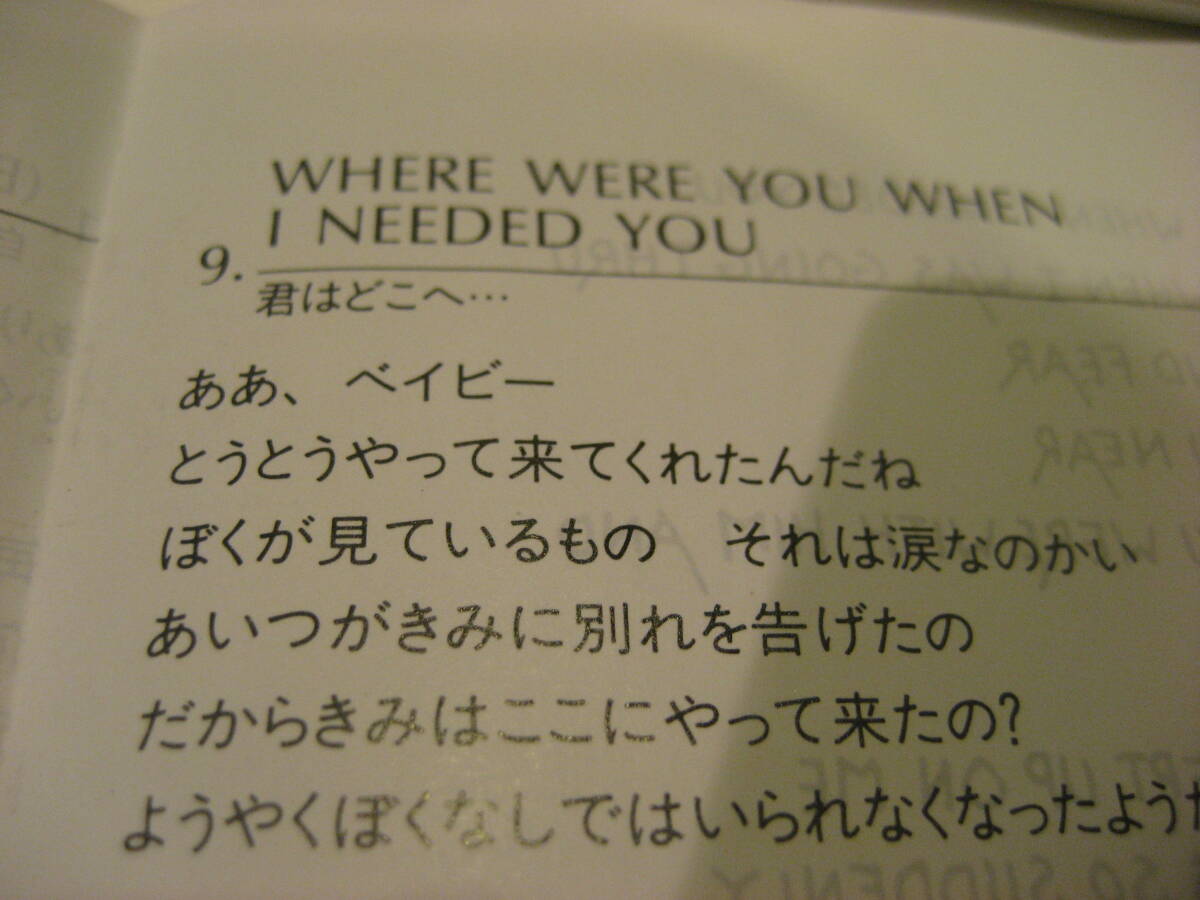 WHERE WERE YOU WHEN
I NEEDED YOU
9.
君はどこへ…
ああ、ベイビー
とうとうやって来てくれたんだね
ぼくが見ているもの　それは涙なのかい
あいつがきみに別れを告げたの
だからきみはここにやって来たの?
ようやくぼくなしではいられなくなったよう